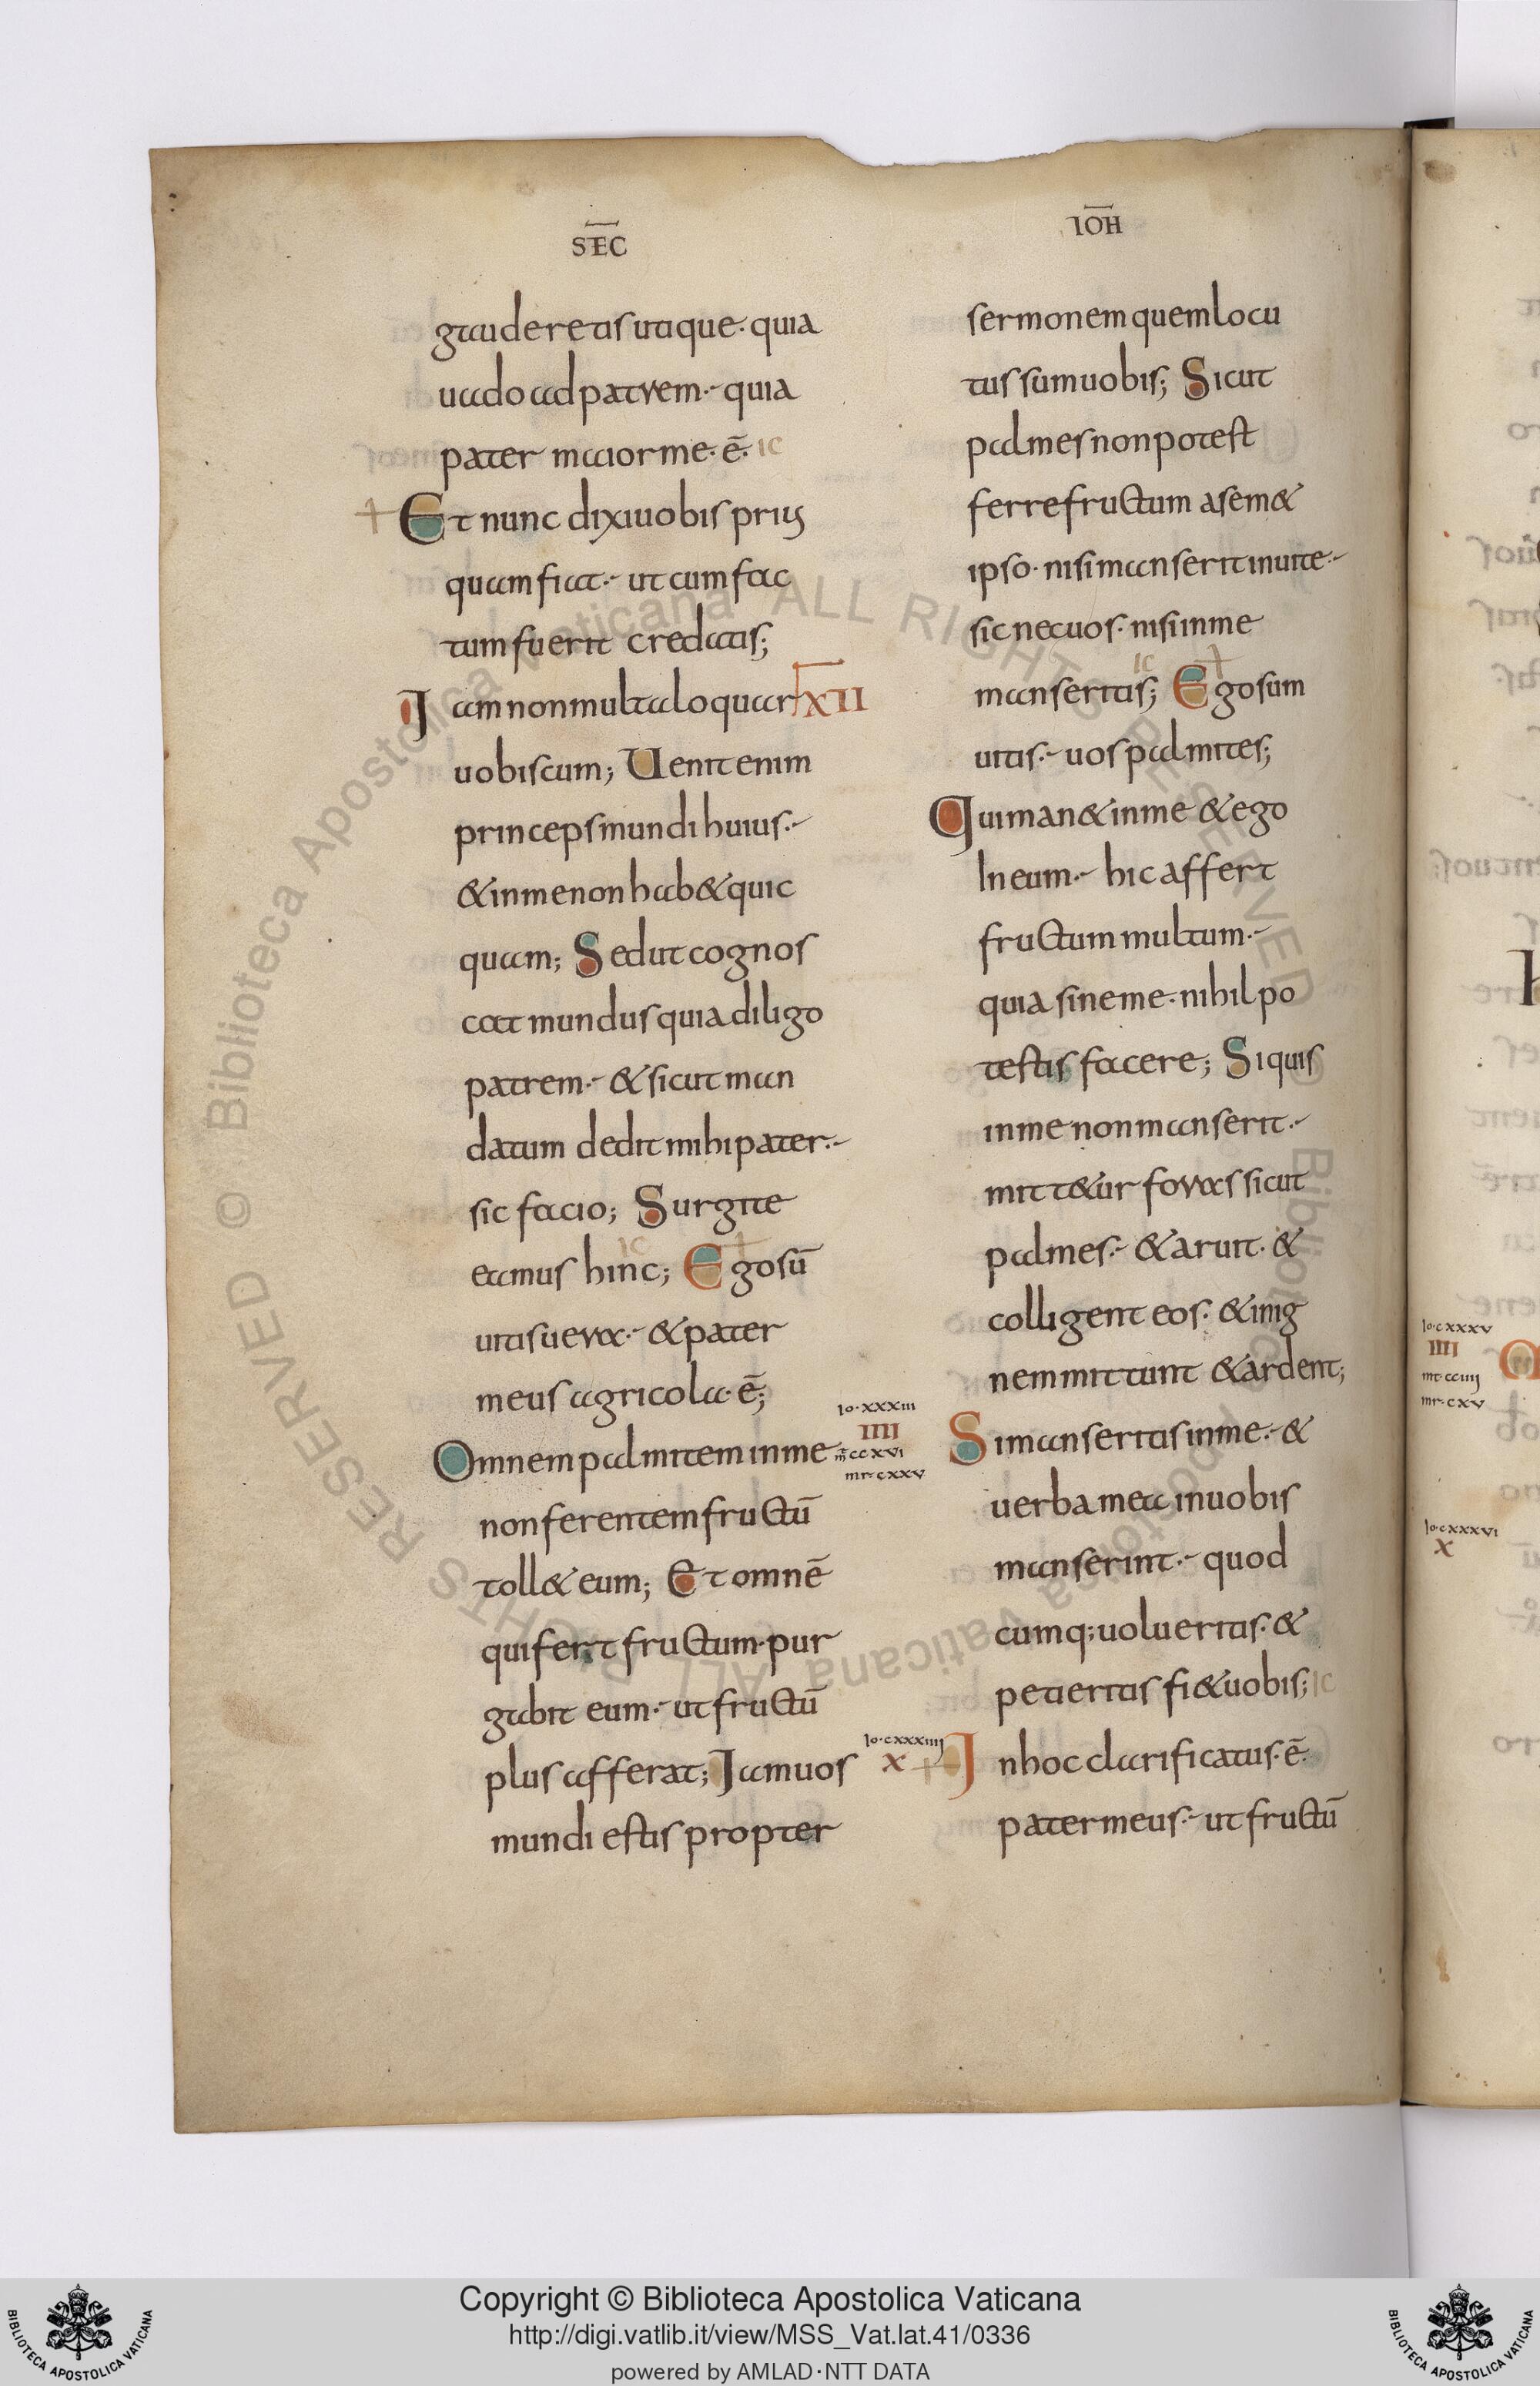 SEC̅
gauderetis utique· quia
uado ad patrem·- quia
pater maior me· ē· ic
+ Et nunc dixi uobis prius
quam fiat·- ut cum fac
tum fuerit credatis;
Iam non multa loquar XII
uobiscum; Uenit enim
princeps mundi huius·-
& in me non hab& quic
quam; Sed ut cognos
cat mundus quia diligo
patrem·- & sicut man
datum dedit mihi pater·-
sic facio; Surgite
eamus hinc; ic + Ego sū
uitis uera·- & pater
meus agricola· ē;
Omnem palmitem in me
non ferentem fructū
toll& eum; Et omnē
qui fert fructum· pur
gabit eum·- ut fructū
plus afferat; Iam uos
mundi estis propter
Io·xxxiii
IIII
m̄ ccxvi
mr·cxxv
Io·cxxxiiii
x +
IOH̅
sermonem quem locu
tus sum uobis; Sicut
palmes non potest
ferre fructum a sem&
ipso· nisi manserit in uite·-
sic nec uos· nisi in me
manseritis; ic + Ego sum
uitis·- uos palmites;
Qui man& in me & ego
In eum·- hic affert
fructum multum·-
quia sine me· nihil po
testis facere; Si quis
in me non manserit·-
mitt&ur foras sicut
palmes·- & aruit· &
colligent eos· & in ig
nem mittunt & ardent;
Si manseritis in me·- &
uerba mea in uobis
manserint·- quod
cumq; uolueritis· &
petieritis fi& uobis; ic
In hoc clarificatus· ē·
pater meus·- ut fructū
Io·cxxxv
IIII
mt·cciiij
mr·cxv
Io·cxxxvi
x
© Biblioteca Apostolica Vaticana ALL RIGHTS RESERVED
© Biblioteca Apostolica Vaticana ALL RIGHTS RESERVED
Copyright © Biblioteca Apostolica Vaticana
http://digi.vatlib.it/view/MSS_Vat.lat.41/0336
powered by AMLAD·NTT DATA
BIBLIOTECA APOSTOLICA VATICANA
BIBLIOTECA APOSTOLICA VATICANA